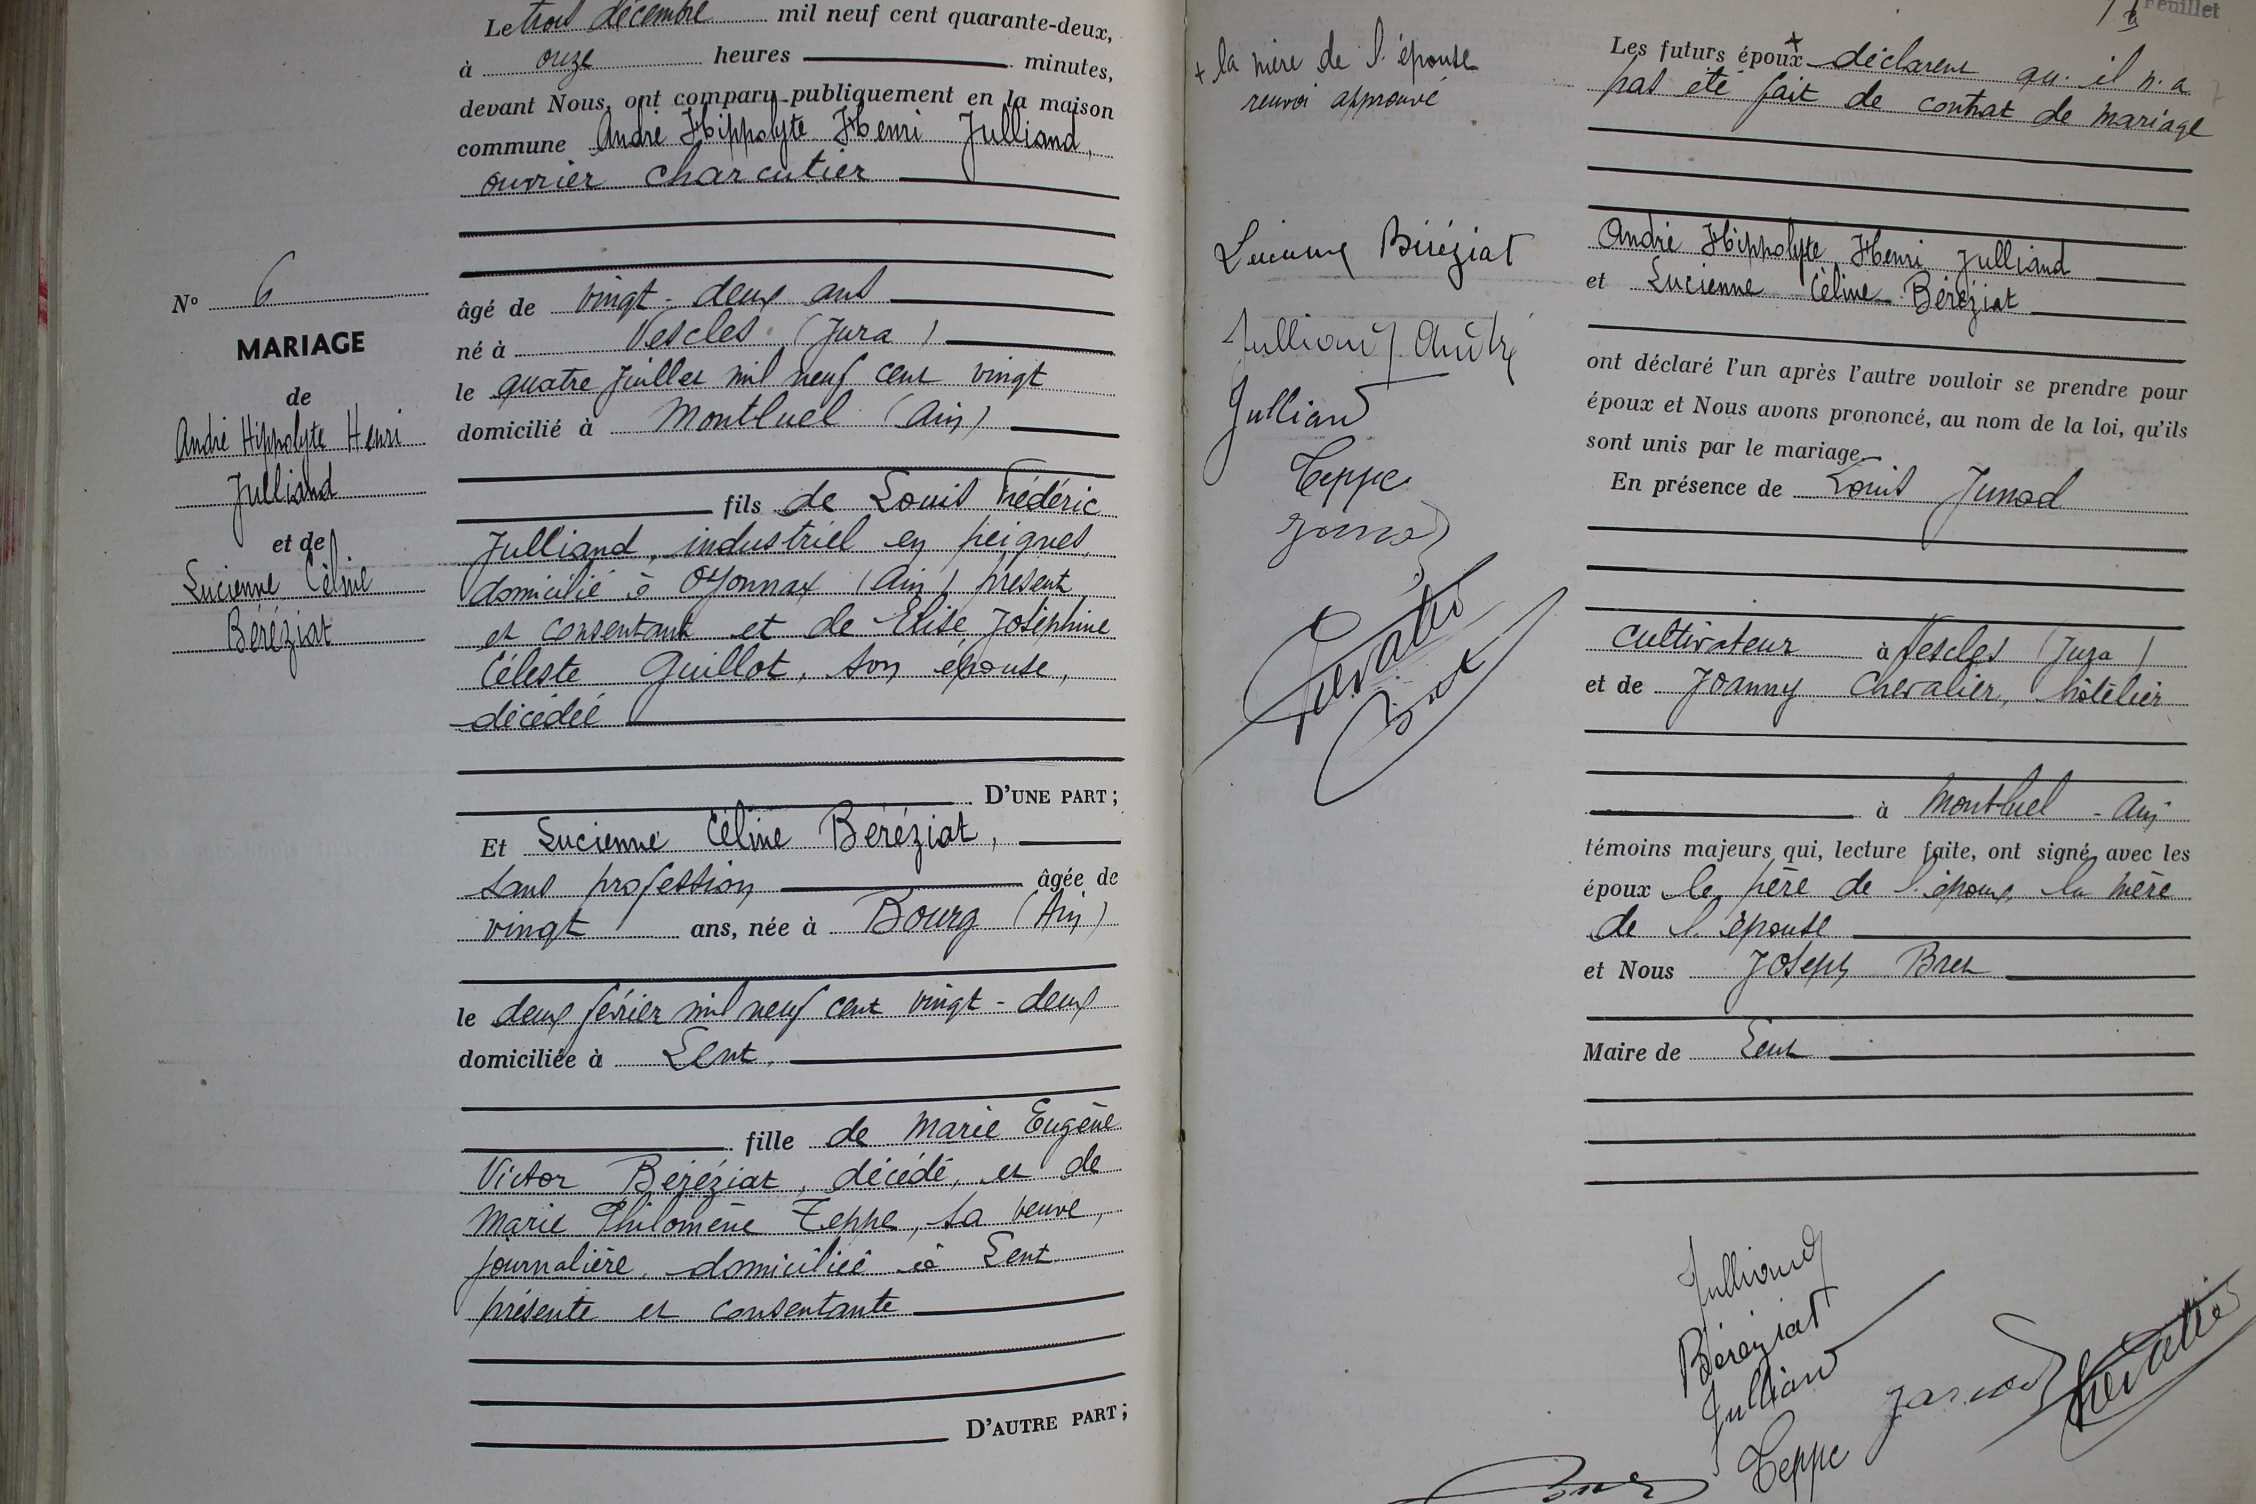 Le trois décembre mil neuf cent quarante-deux,
à onze heures minutes,
devant Nous, ont comparu publiquement en la maison
commune André Hippolyte Henri Julliand,
ouvrier charcutier
âgé de vingt-deux ans
né à Vescles (Jura)
le quatre juillet mil neuf cent vingt
domicilié à Montluel (Ain)
fils de Louis Frédéric
Julliand, industriel en peignes,
domicilié à Oyonnax (Ain) présent
et consentant et de Elise Joséphine
Céleste Guillot, son épouse,
décédée
D'UNE PART ;
Et Lucienne Céline Béréziat,
sans profession âgée de
vingt ans, née à Bourg (Ain)
le deux février mil neuf cent vingt-deux
domiciliée à Lent.
fille de Marie Eugène
Victor Béréziat, décédé, et de
Marie Philomène Teppe, sa veuve,
journalière, domiciliée à Lent
présente et consentante
D'AUTRE PART ;
N° 6
MARIAGE
de
André Hippolyte Henri
Julliand
et de
Lucienne Céline
Béréziat
Feuillet
+ la mère de l'épouse
renvoi approuvé
Lucienne Béréziat
Julliand André
Julliand
Teppe
Les futurs époux + déclarent qu'il n'a
pas été fait de contrat de mariage
André Hippolyte Henri Julliand
et Lucienne Céline Béréziat
ont déclaré l'un après l'autre vouloir se prendre pour
époux et Nous avons prononcé, au nom de la loi, qu'ils
sont unis par le mariage.
En présence de Louis Junod
cultivateur à Vescles (Jura)
et de Joanny Chevalier, hôtelier
à Montluel - Ain
témoins majeurs qui, lecture faite, ont signé avec les
époux le père de l'époux, la mère
de l'épouse
et Nous Joseph Bret
Maire de Lent
Julliand
Béréziat
Julliand
Teppe